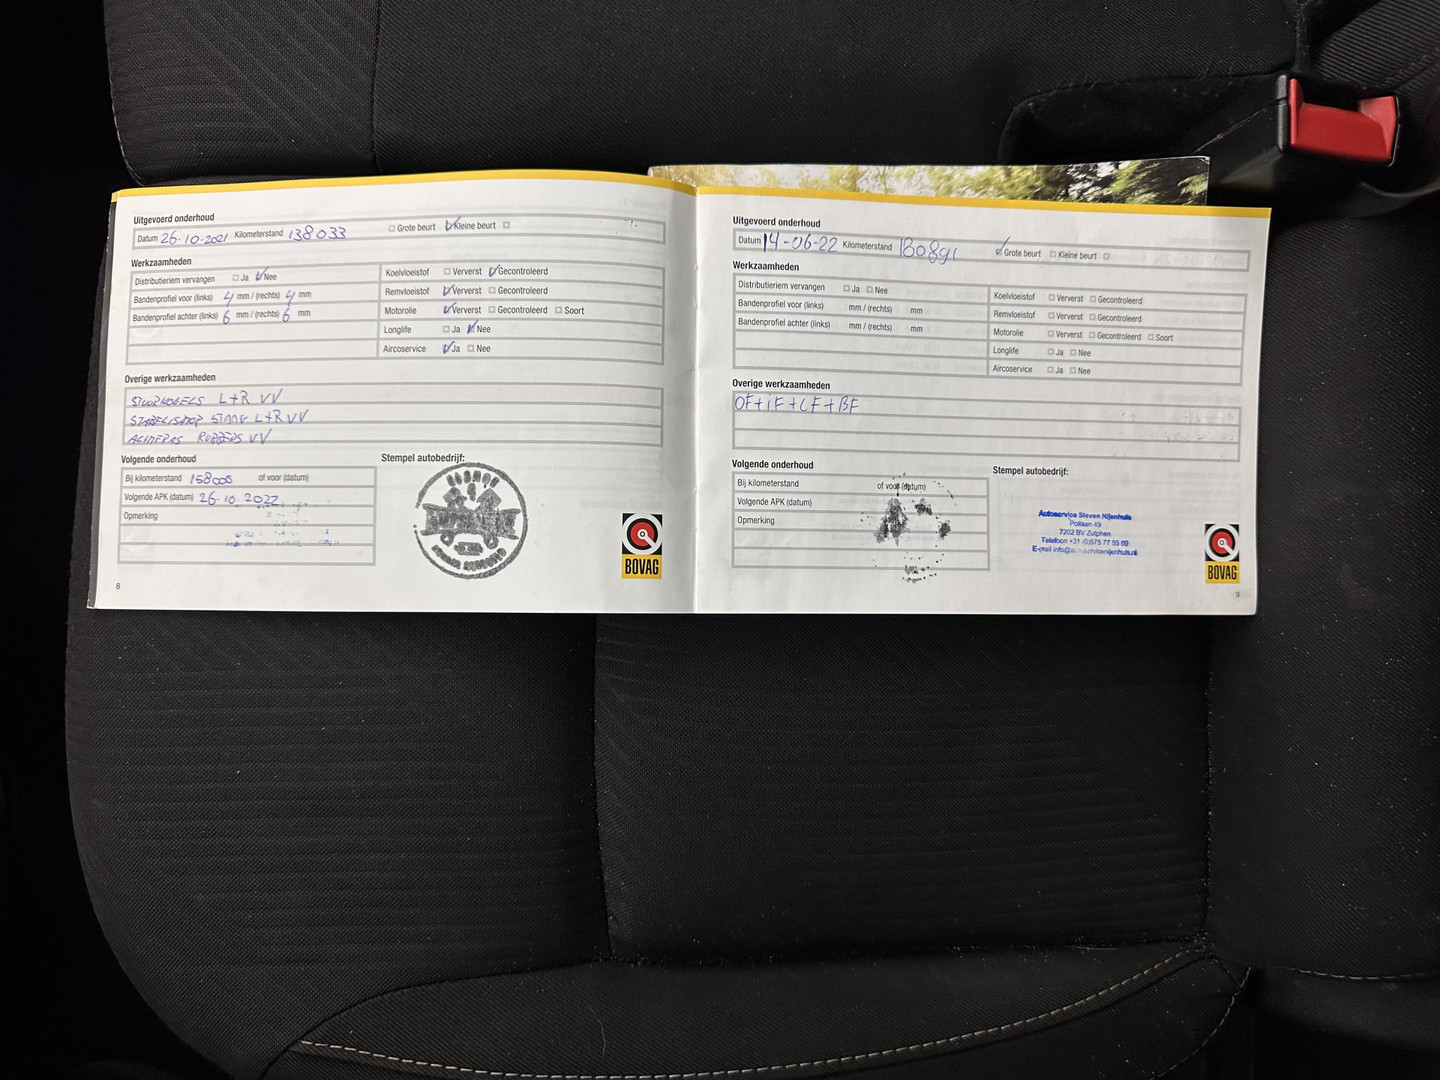 Uitgevoerd onderhoud
Datum 26-10-2021 Kilometerstand 138033 Grote beurt Kleine beurt
Werkzaamheden
Distributieriem vervangen Ja Nee
Bandenprofiel voor (links) 4 mm / (rechts) 4 mm
Bandenprofiel achter (links) 6 mm / (rechts) 6 mm
Koelvloeistof Ververst Gecontroleerd
Remvloeistof Ververst Gecontroleerd
Motorolie Ververst Gecontroleerd Soort
Longlife Ja Nee
Aircoservice Ja Nee
Overige werkzaamheden
STUURKOGELS L+R VV
STABELISATOR STANG L+R VV
RUBBERS VV
Volgende onderhoud
Bij kilometerstand 158000 of voor (datum)
Volgende APK (datum) 26-10-2022
Opmerking
Stempel autobedrijf:
BOVAG
8
Uitgevoerd onderhoud
Datum 14-06-22 Kilometerstand Grote beurt Kleine beurt
Werkzaamheden
Distributieriem vervangen Ja Nee
Bandenprofiel voor (links) mm / (rechts) mm
Bandenprofiel achter (links) mm / (rechts) mm
Koelvloeistof Ververst Gecontroleerd
Remvloeistof Ververst Gecontroleerd
Motorolie Ververst Gecontroleerd Soort
Longlife Ja Nee
Aircoservice Ja Nee
Overige werkzaamheden
OF+iF+LF+BF
Volgende onderhoud
Bij kilometerstand of voor (datum)
Volgende APK (datum)
Opmerking
Stempel autobedrijf:
Autoservice Steven Nijenhuis
Pollaan 49
7202 BV Zutphen
Telefoon +31 (0)575 77 55 69
E-mail info@autoservicenijenhuis.nl
BOVAG
9